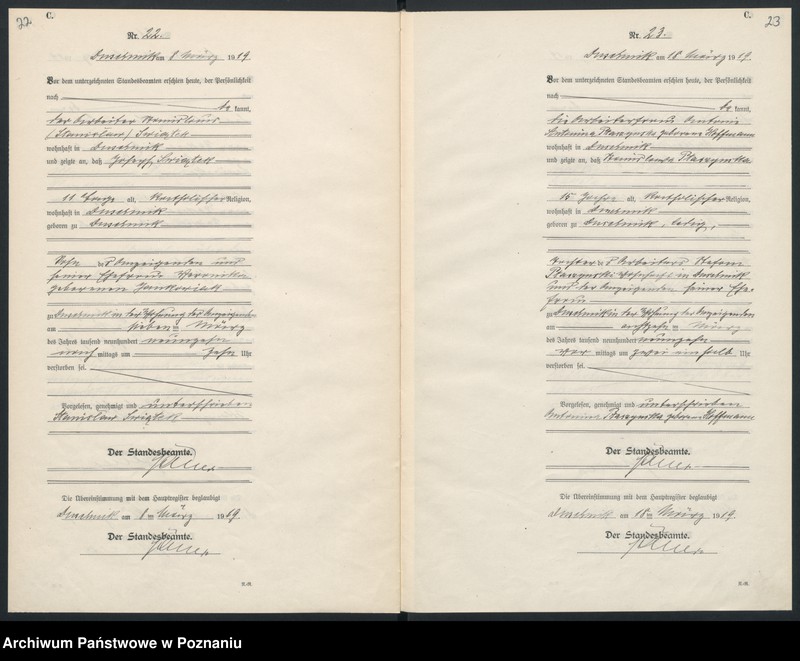 22.
C.
Nr. 22.
am 8 März 1919
Vor dem unterzeichneten Standesbeamten erschien heute, der Persönlichkeit
nach be kannt,
der Arbeiter Stanislaus
(Stanislaw)
wohnhaft in
und zeigte an, daß Joseph
11 Tage alt, Katholischer Religion,
wohnhaft in
geboren zu
Sohn des Anzeigenden und
seiner Ehefrau Veronika
geborenen
zu in der Wohnung des Anzeigenden
am sieben März
des Jahres tausend neunhundert neunzehn
nach mittags um zehn Uhr
verstorben sei.
Vorgelesen, genehmigt und unterschrieben
Stanislaw
Der Standesbeamte.
Die Übereinstimmung mit dem Hauptregister beglaubigt
am 8 März 1919.
Der Standesbeamte.
C.
23
Nr. 23.
am 18 März 1919.
Vor dem unterzeichneten Standesbeamten erschien heute, der Persönlichkeit
nach be kannt,
die Arbeiterfrau Antonie
Antonina geborene Hoffmann
wohnhaft in
und zeigte an, daß Stanislawa
15 Jahre alt, Katholischer Religion,
wohnhaft in
geboren zu , ledig,
Tochter des Arbeiters Stefan
wohnhaft in
und der Anzeigenden seiner Ehe-
frau
zu in der Wohnung des Anzeigenden
am achtzehn März
des Jahres tausend neunhundert neunzehn
vor mittags um zwei einhalb Uhr
verstorben sei.
Vorgelesen, genehmigt und unterschrieben
Antonina geborene Hoffmann
Der Standesbeamte.
Die Übereinstimmung mit dem Hauptregister beglaubigt
am 18 März 1919.
Der Standesbeamte.
Archiwum Państwowe w Poznaniu